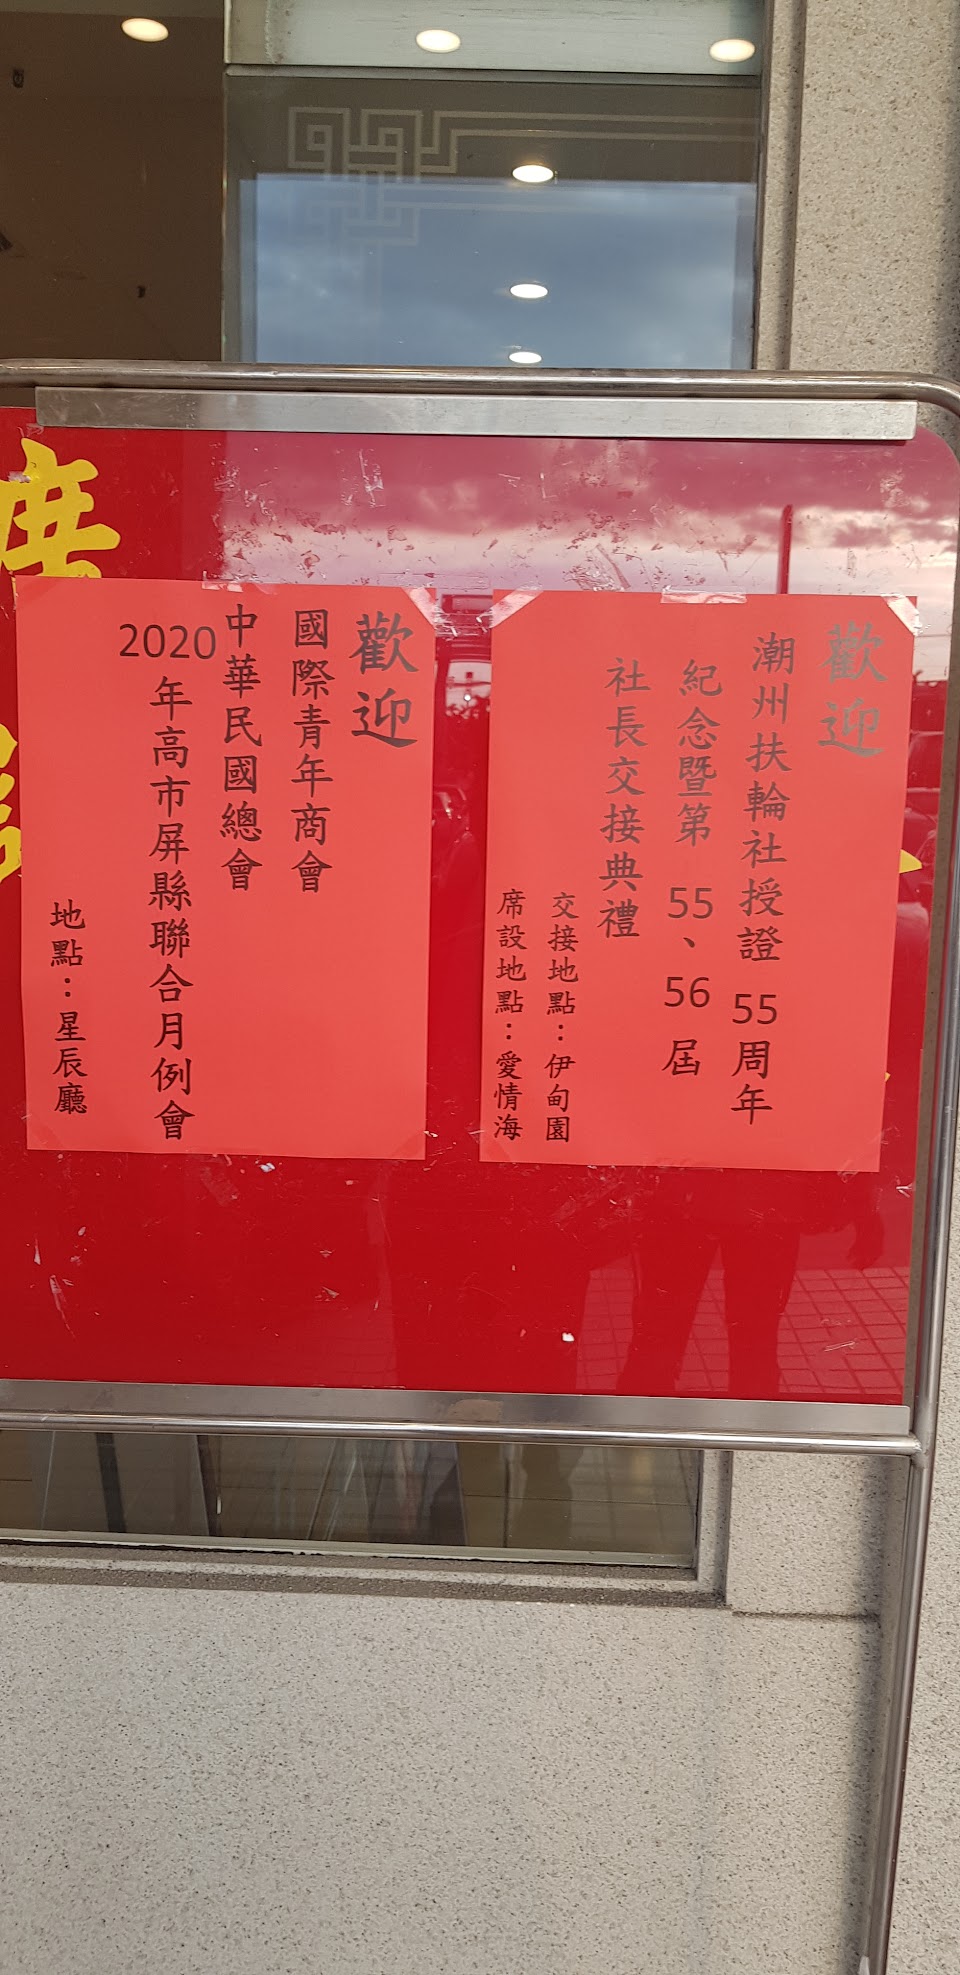 歡迎
潮州扶輪社授證 55 周年
紀念暨第 55、56 屆
社長交接典禮
交接地點：伊甸園
席設地點：愛情海
歡迎
國際青年商會
中華民國總會
2020 年高市屏縣聯合月例會
地點：星辰廳